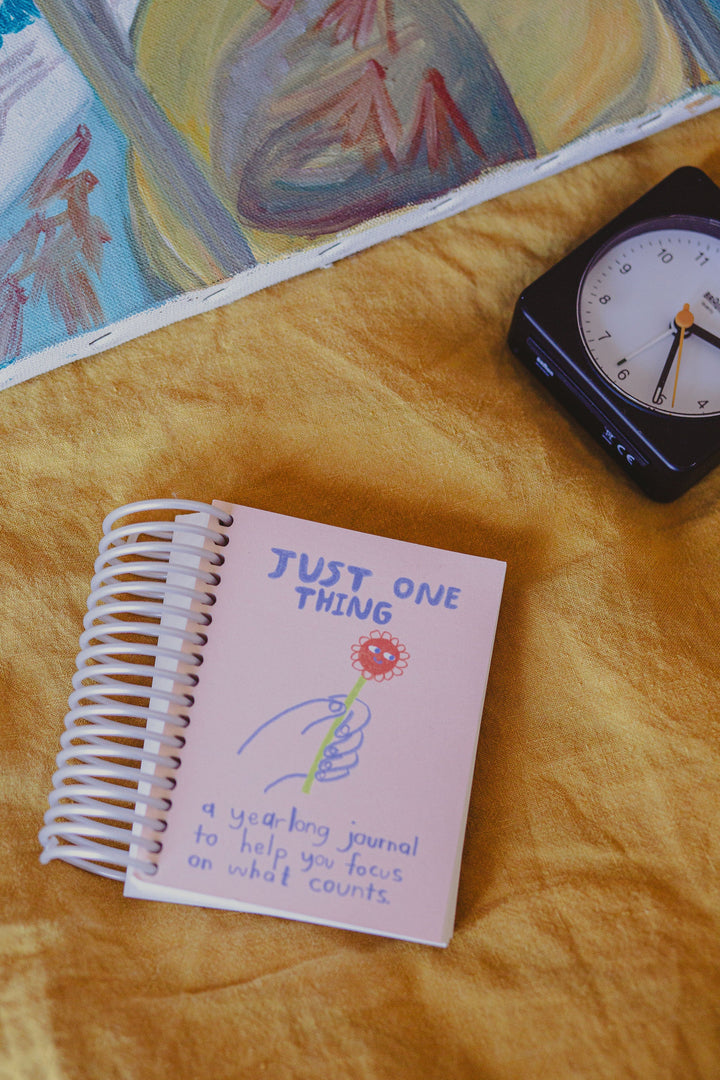 10 11
9
8
7
6
5
4
CE
JUST ONE
THING
a yearlong journal
to help you focus
on what counts.